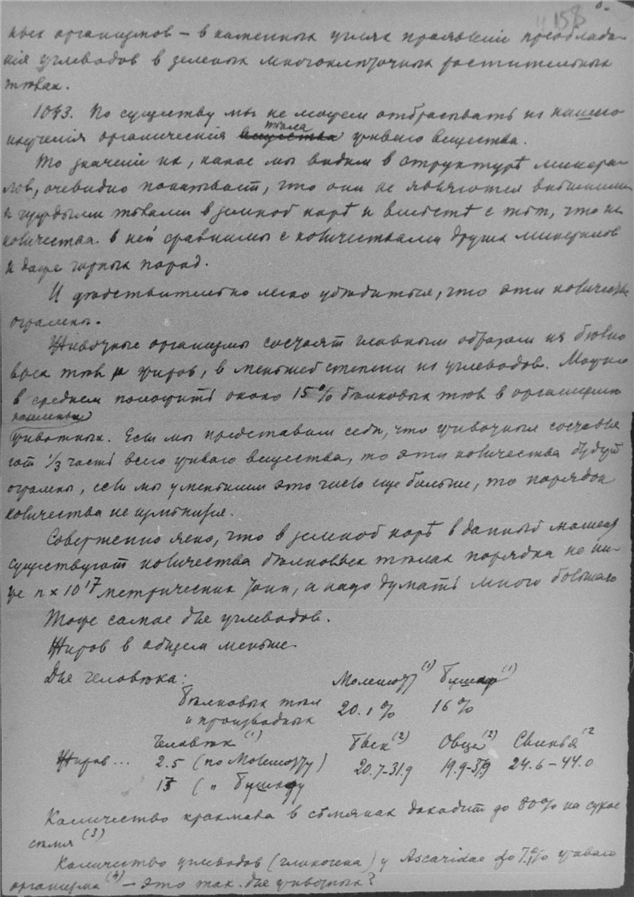 158
ных организмов – в каменных углях проявление преоблада-
ния углеводов в зеленых многоклеточных растительных
телах.
1063. По существу мы не можем отбрасывать из нашего
изучения органические тела живого вещества.
То значение их, какое мы видим в структурѣ минера-
лов, очевидно показывает, что они не являются внешними
и чуждыми телами в земной корѣ и вместѣ с тѣм, что их
количества в ней сравнимы с количествами других минералов
и даже горных пород.
И действительно легко убедиться, что эти количества
огромны.
Животные организмы состоят главным образом из белко-
вых тел и жиров, в меньшей степени из углеводов. Можно
в среднем положить около 15% белковых тел в организме
животных. Если мы представим себе, что животные составля-
ют 1/3 часть всего живого вещества, то эти количества будут
огромны, если мы уменьшим это число еще больше, то порядок
количества не изменится.
Совершенно ясно, что в земной корѣ в данный момент
существуют количества бѣлковых тѣлах порядка не ни-
же n × 10^17 метрических тонн, а надо думать много большаго
Тоже самое для углеводов.
Жиров в общем меньше.
Для человѣка:
Молешотт (1) Бушар (1)
Бѣлковых тѣл
и производных 20.1% 16%
Человѣк (1) Бык (2) Овца (2) Свинья (2
Жиров... 2.5 (по Молешотту) 20.7-31.9 19.9- 24.6-44.0
13 ( " Бушару
Количество крахмала в сѣмянах доходит до 80% на сухое
сѣмя (3)
Количество углеводов (гликогена) у Ascaridae до живого
организма (4) – это так. для животных?